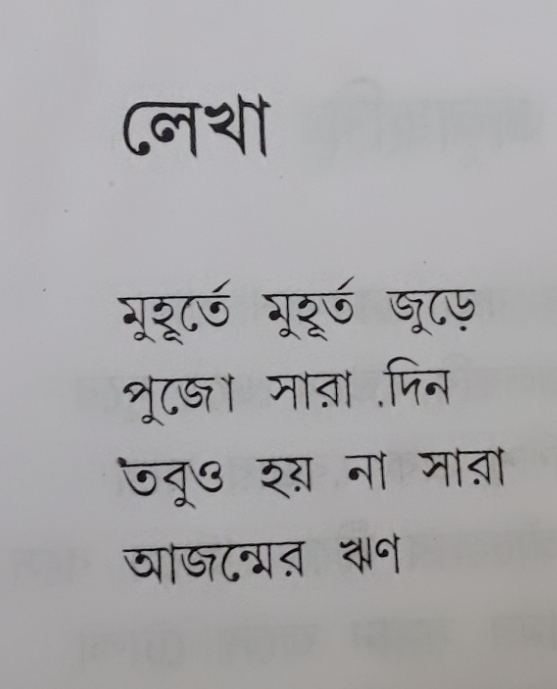 লেখা
মুহূর্তে মুহূর্ত জুড়ে
পুজো সারা দিন
তবুও হয় না সারা
আজন্মের ঋণ